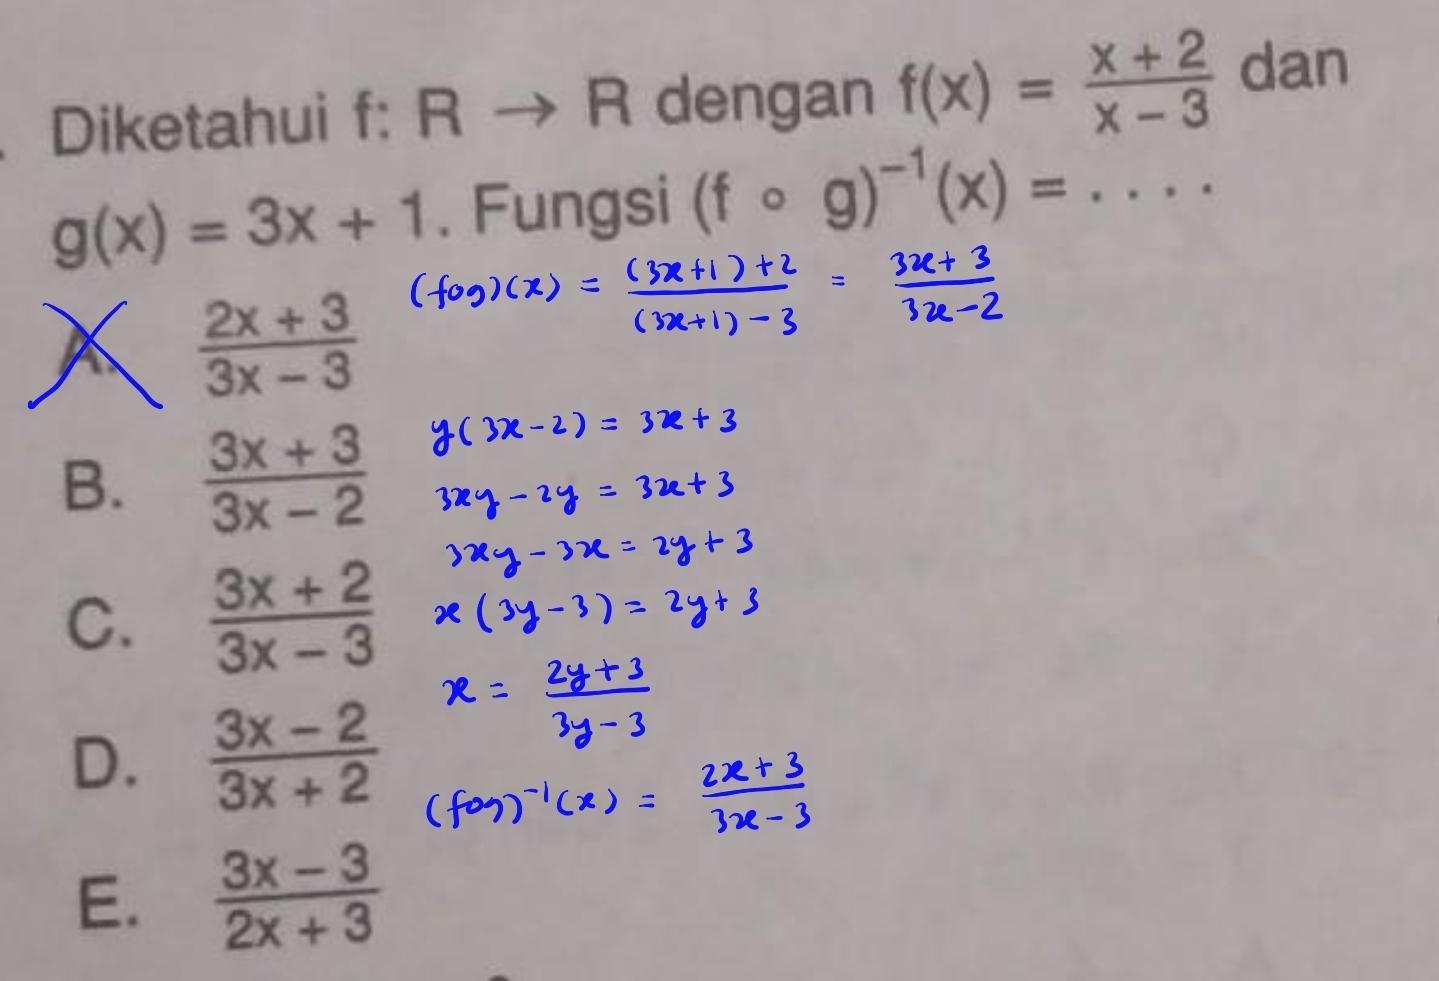 Diketahui f: R → R dengan f(x) = (x + 2)/(x – 3) dan
g(x) = 3x + 1. Fungsi (f ∘ g)⁻¹(x) = . . . .
(fog)(x) = ((3x+1)+2)/((3x+1)-3) = (3x+3)/(3x-2)
A. (2x + 3)/(3x – 3)
B. (3x + 3)/(3x – 2)
C. (3x + 2)/(3x – 3)
D. (3x – 2)/(3x + 2)
E. (3x – 3)/(2x + 3)
y(3x-2) = 3x+3
3xy - 2y = 3x+3
3xy - 3x = 2y+3
x(3y-3) = 2y+3
x = (2y+3)/(3y-3)
(fog)⁻¹(x) = (2x+3)/(3x-3)